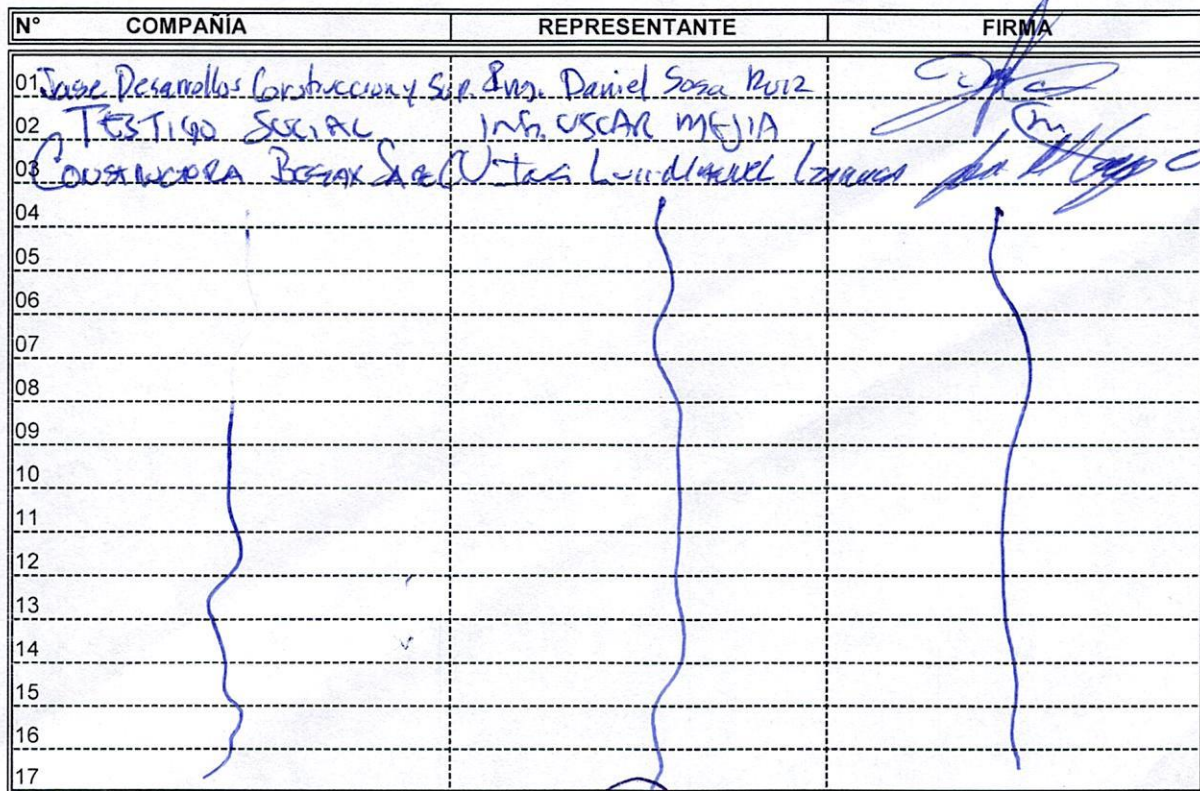 N° COMPAÑÍA REPRESENTANTE FIRMA
01 Jase Desarrollos Construccion y Sup. Ing. Daniel Sosa Ruiz
02 TESTIGO SOCIAL ING. OSCAR MEJIA
03 CONSTRUCTORA SA DE CV Ing. Luis Manuel
04
05
06
07
08
09
10
11
12
13
14
15
16
17